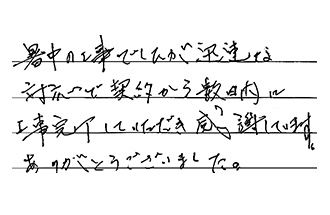 暑中の工事でしたが迅速な
対応いで契約から数日内に
工事完了していただき感謝しています。
ありがとうございました。